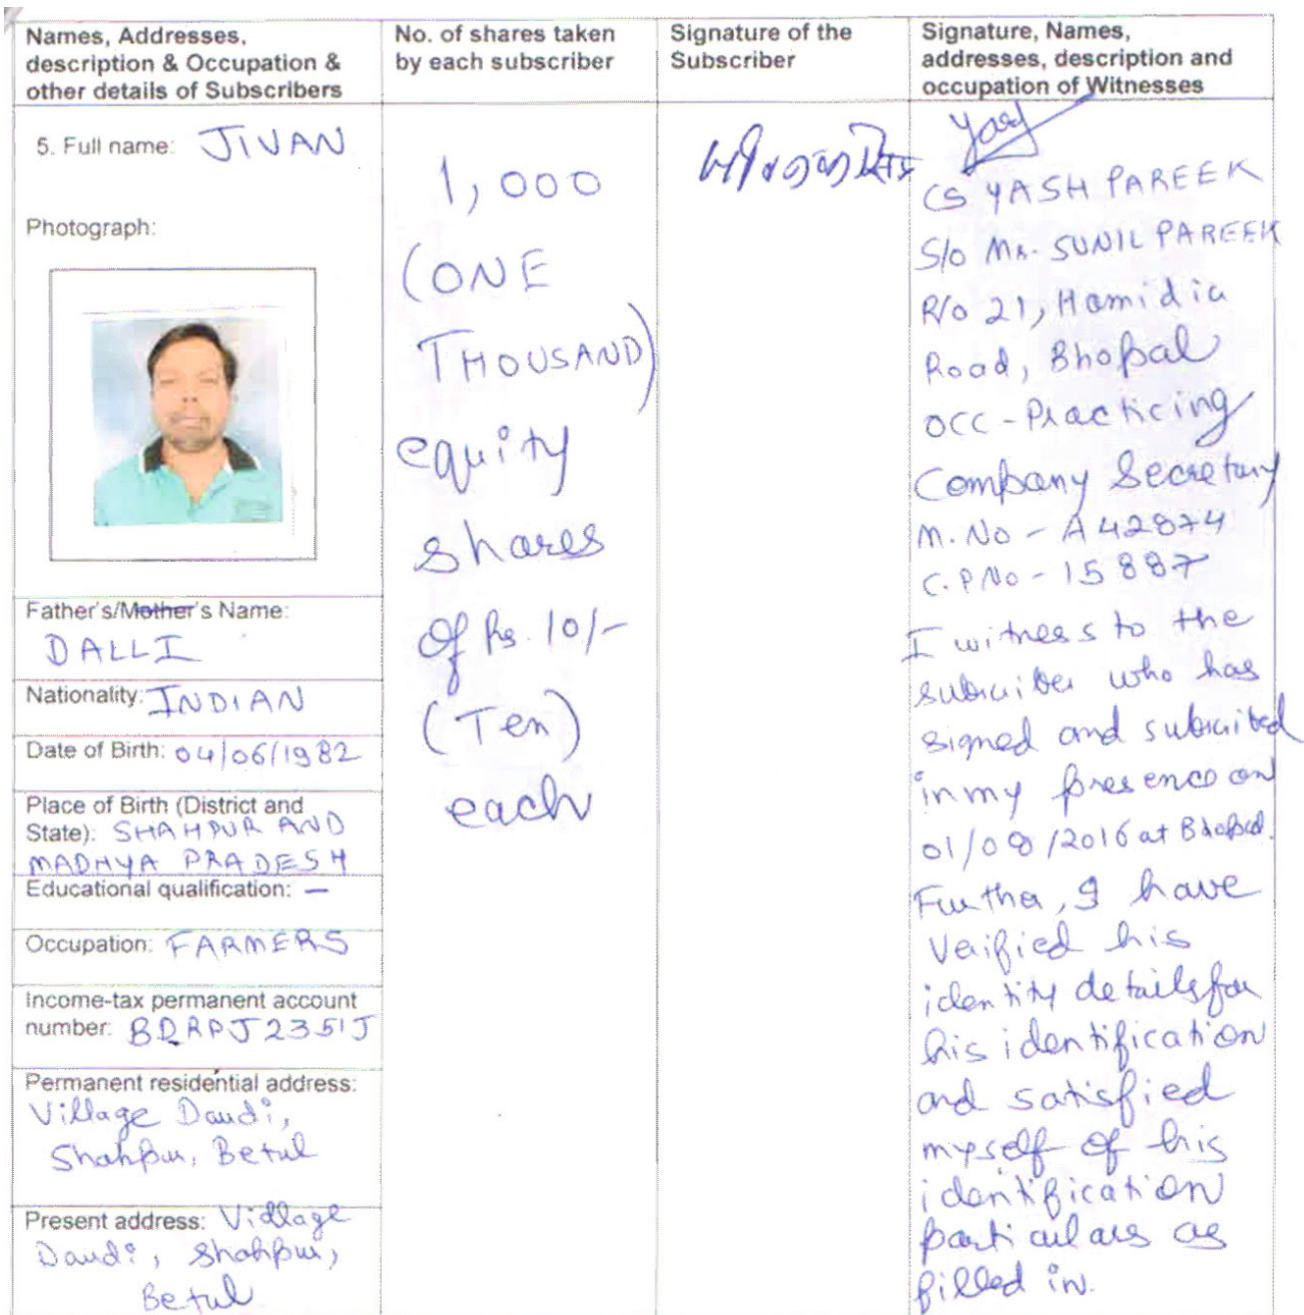 Names, Addresses,
description & Occupation &
other details of Subscribers
No. of shares taken
by each subscriber
Signature of the
Subscriber
Signature, Names,
addresses, description and
occupation of Witnesses
5. Full name: JIVAN
Photograph:
Father's/Mother's Name:
DALLI
Nationality: INDIAN
Date of Birth: 04/06/1982
Place of Birth (District and
State): SHAHPUR AND
MADHYA PRADESH
Educational qualification: –
Occupation: FARMERS
Income-tax permanent account
number: BDRPJ2351J
Permanent residential address:
Village Daudi,
Shahpur, Betul
Present address: Village
Daudi, Shahpur,
Betul
1,000
(ONE
THOUSAND)
equity
shares
of Rs. 10/-
(Ten)
each
Yash
CS YASH PAREEK
S/o Mr. SUNIL PAREEK
R/o 21, Hamidia
Road, Bhopal
OCC - Practicing
Company Secretary
M. No - A 42874
C. P No - 15887
I witness to the
subscriber who has
signed and subscribed
in my presence on
01/08/2016 at Bhopal.
Further, I have
Verified his
identity details for
his identification
and satisfied
myself of his
identification
particulars as
filled in.